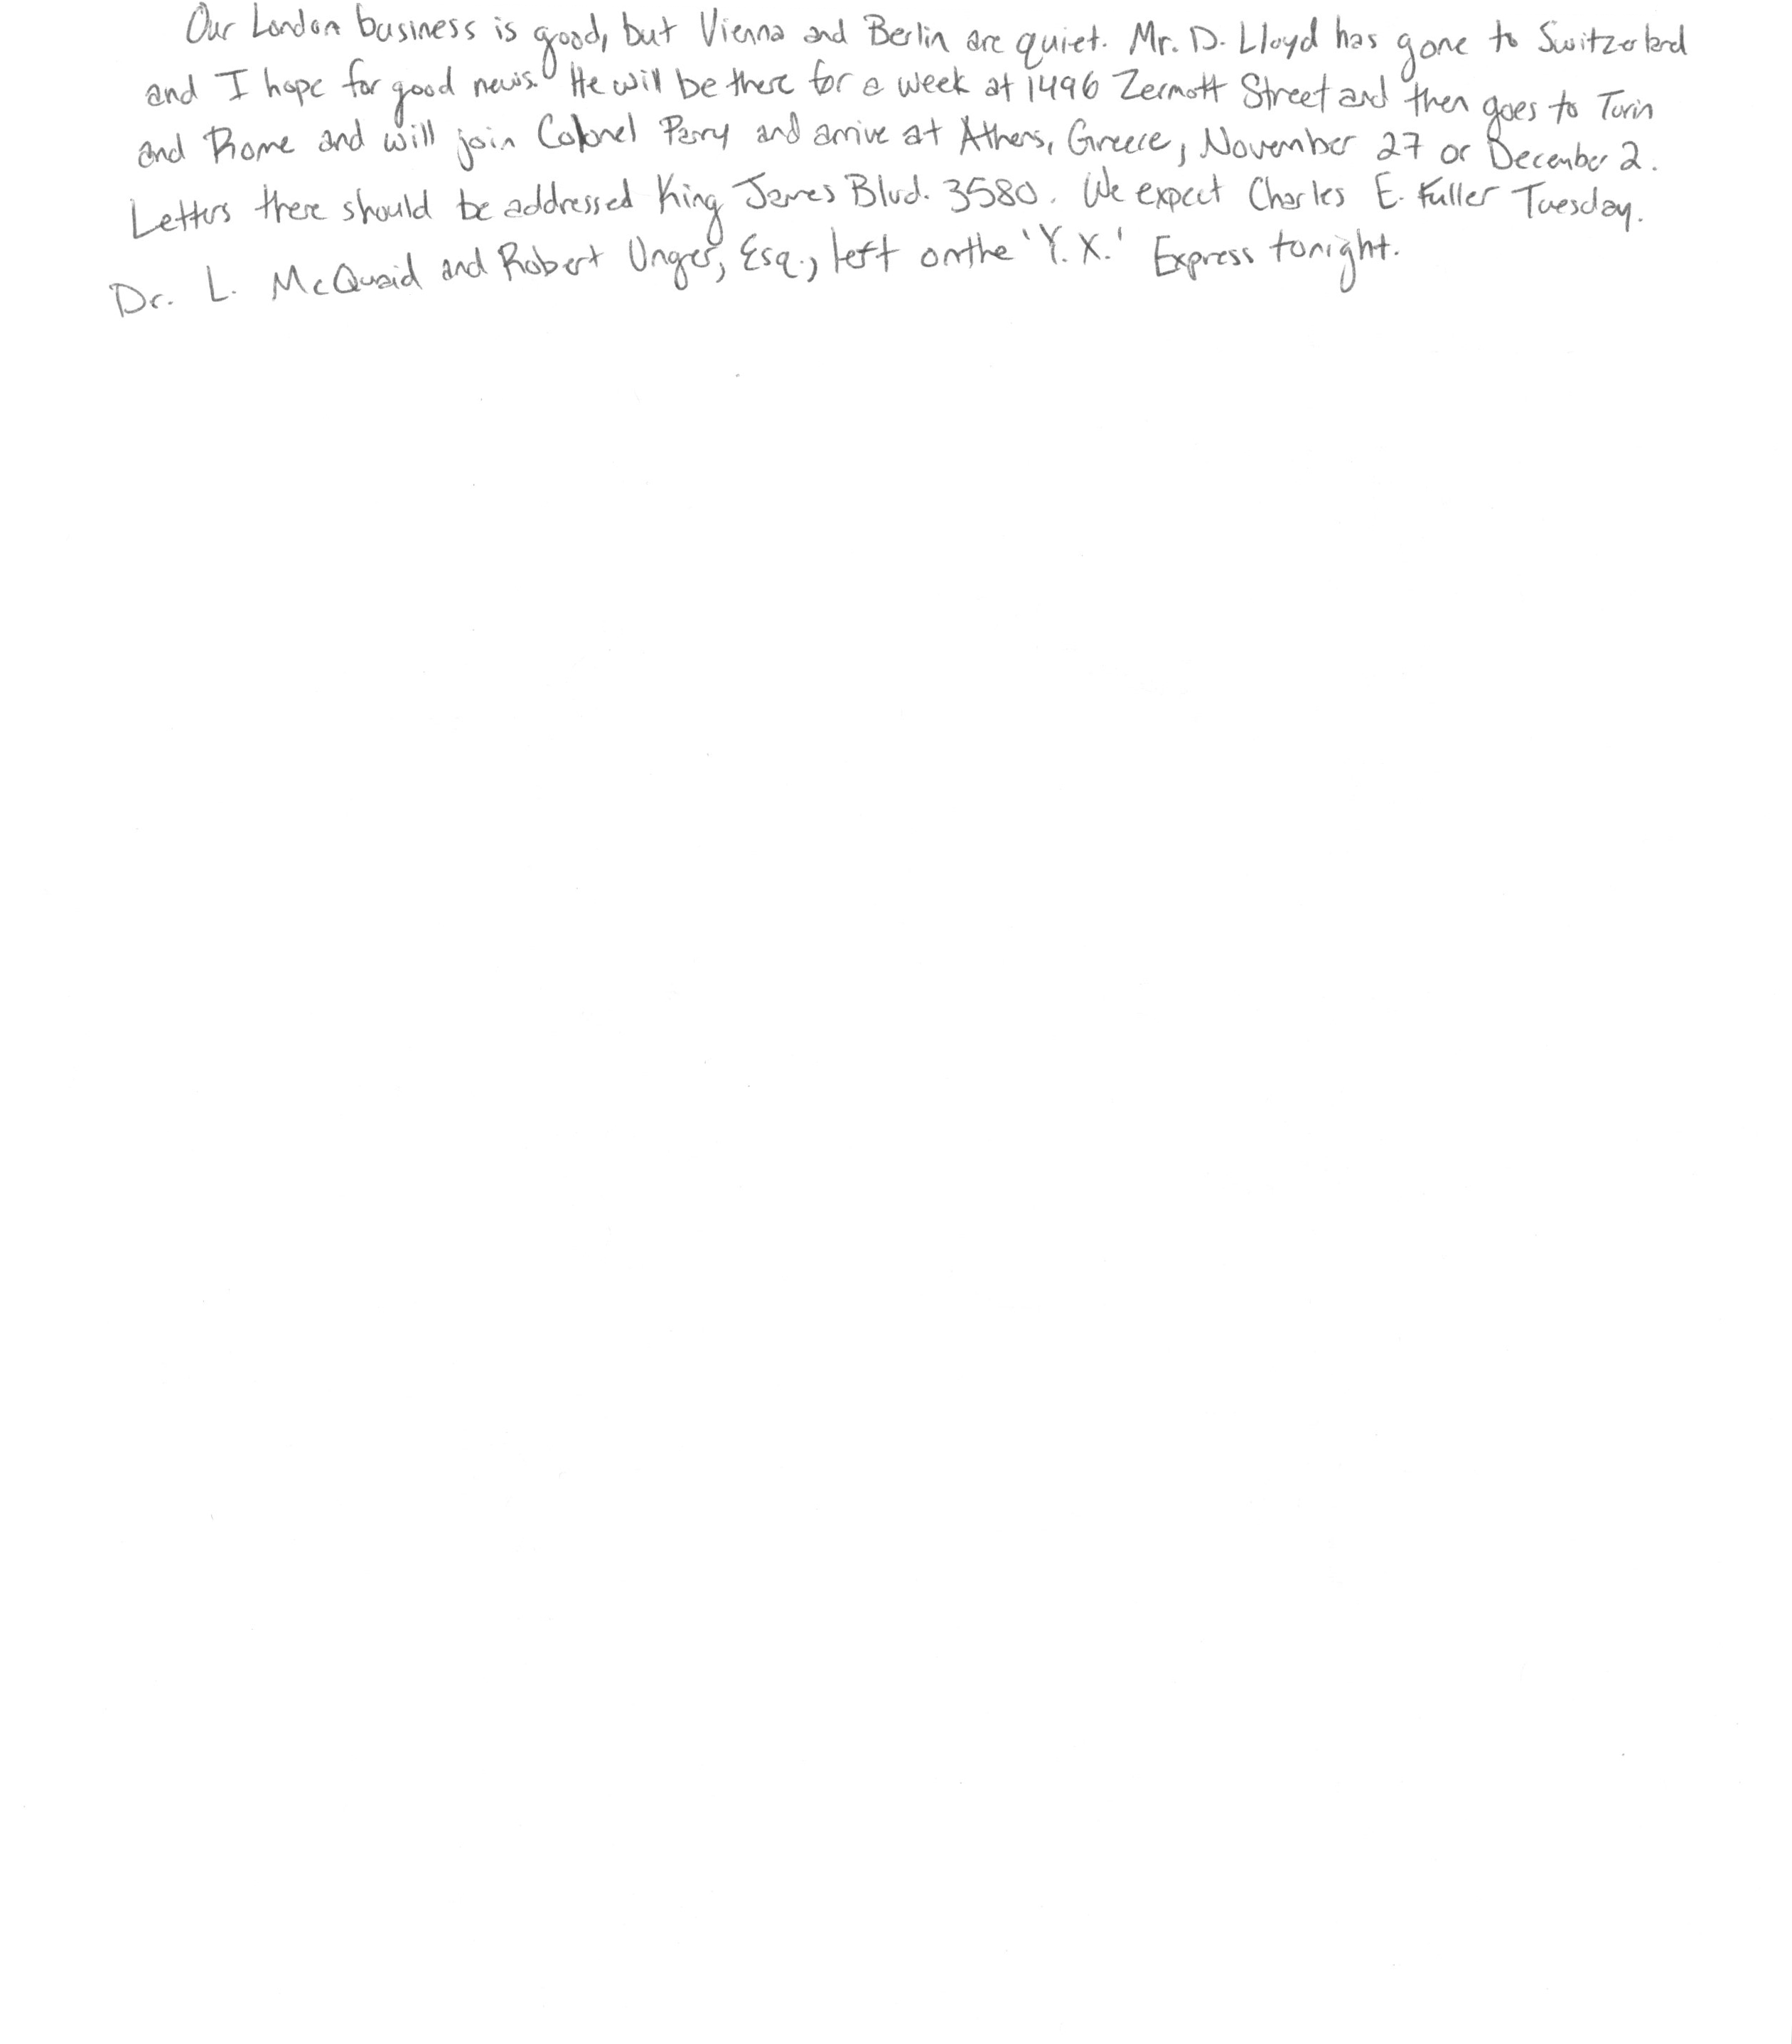 Our London business is good, but Vienna and Berlin are quiet. Mr. D. Lloyd has gone to Switzerland
and I hope for good news. He will be there for a week at 1496 Zermott Street and then goes to Turin
and Rome and will join Colonel Parry and arrive at Athens, Greece, November 27 or December 2.
Letters there should be addressed King James Blvd. 3580. We expect Charles E. Fuller Tuesday.
Dr. L. McQuaid and Robert Unger, Esq., left on the 'Y. X.' Express tonight.